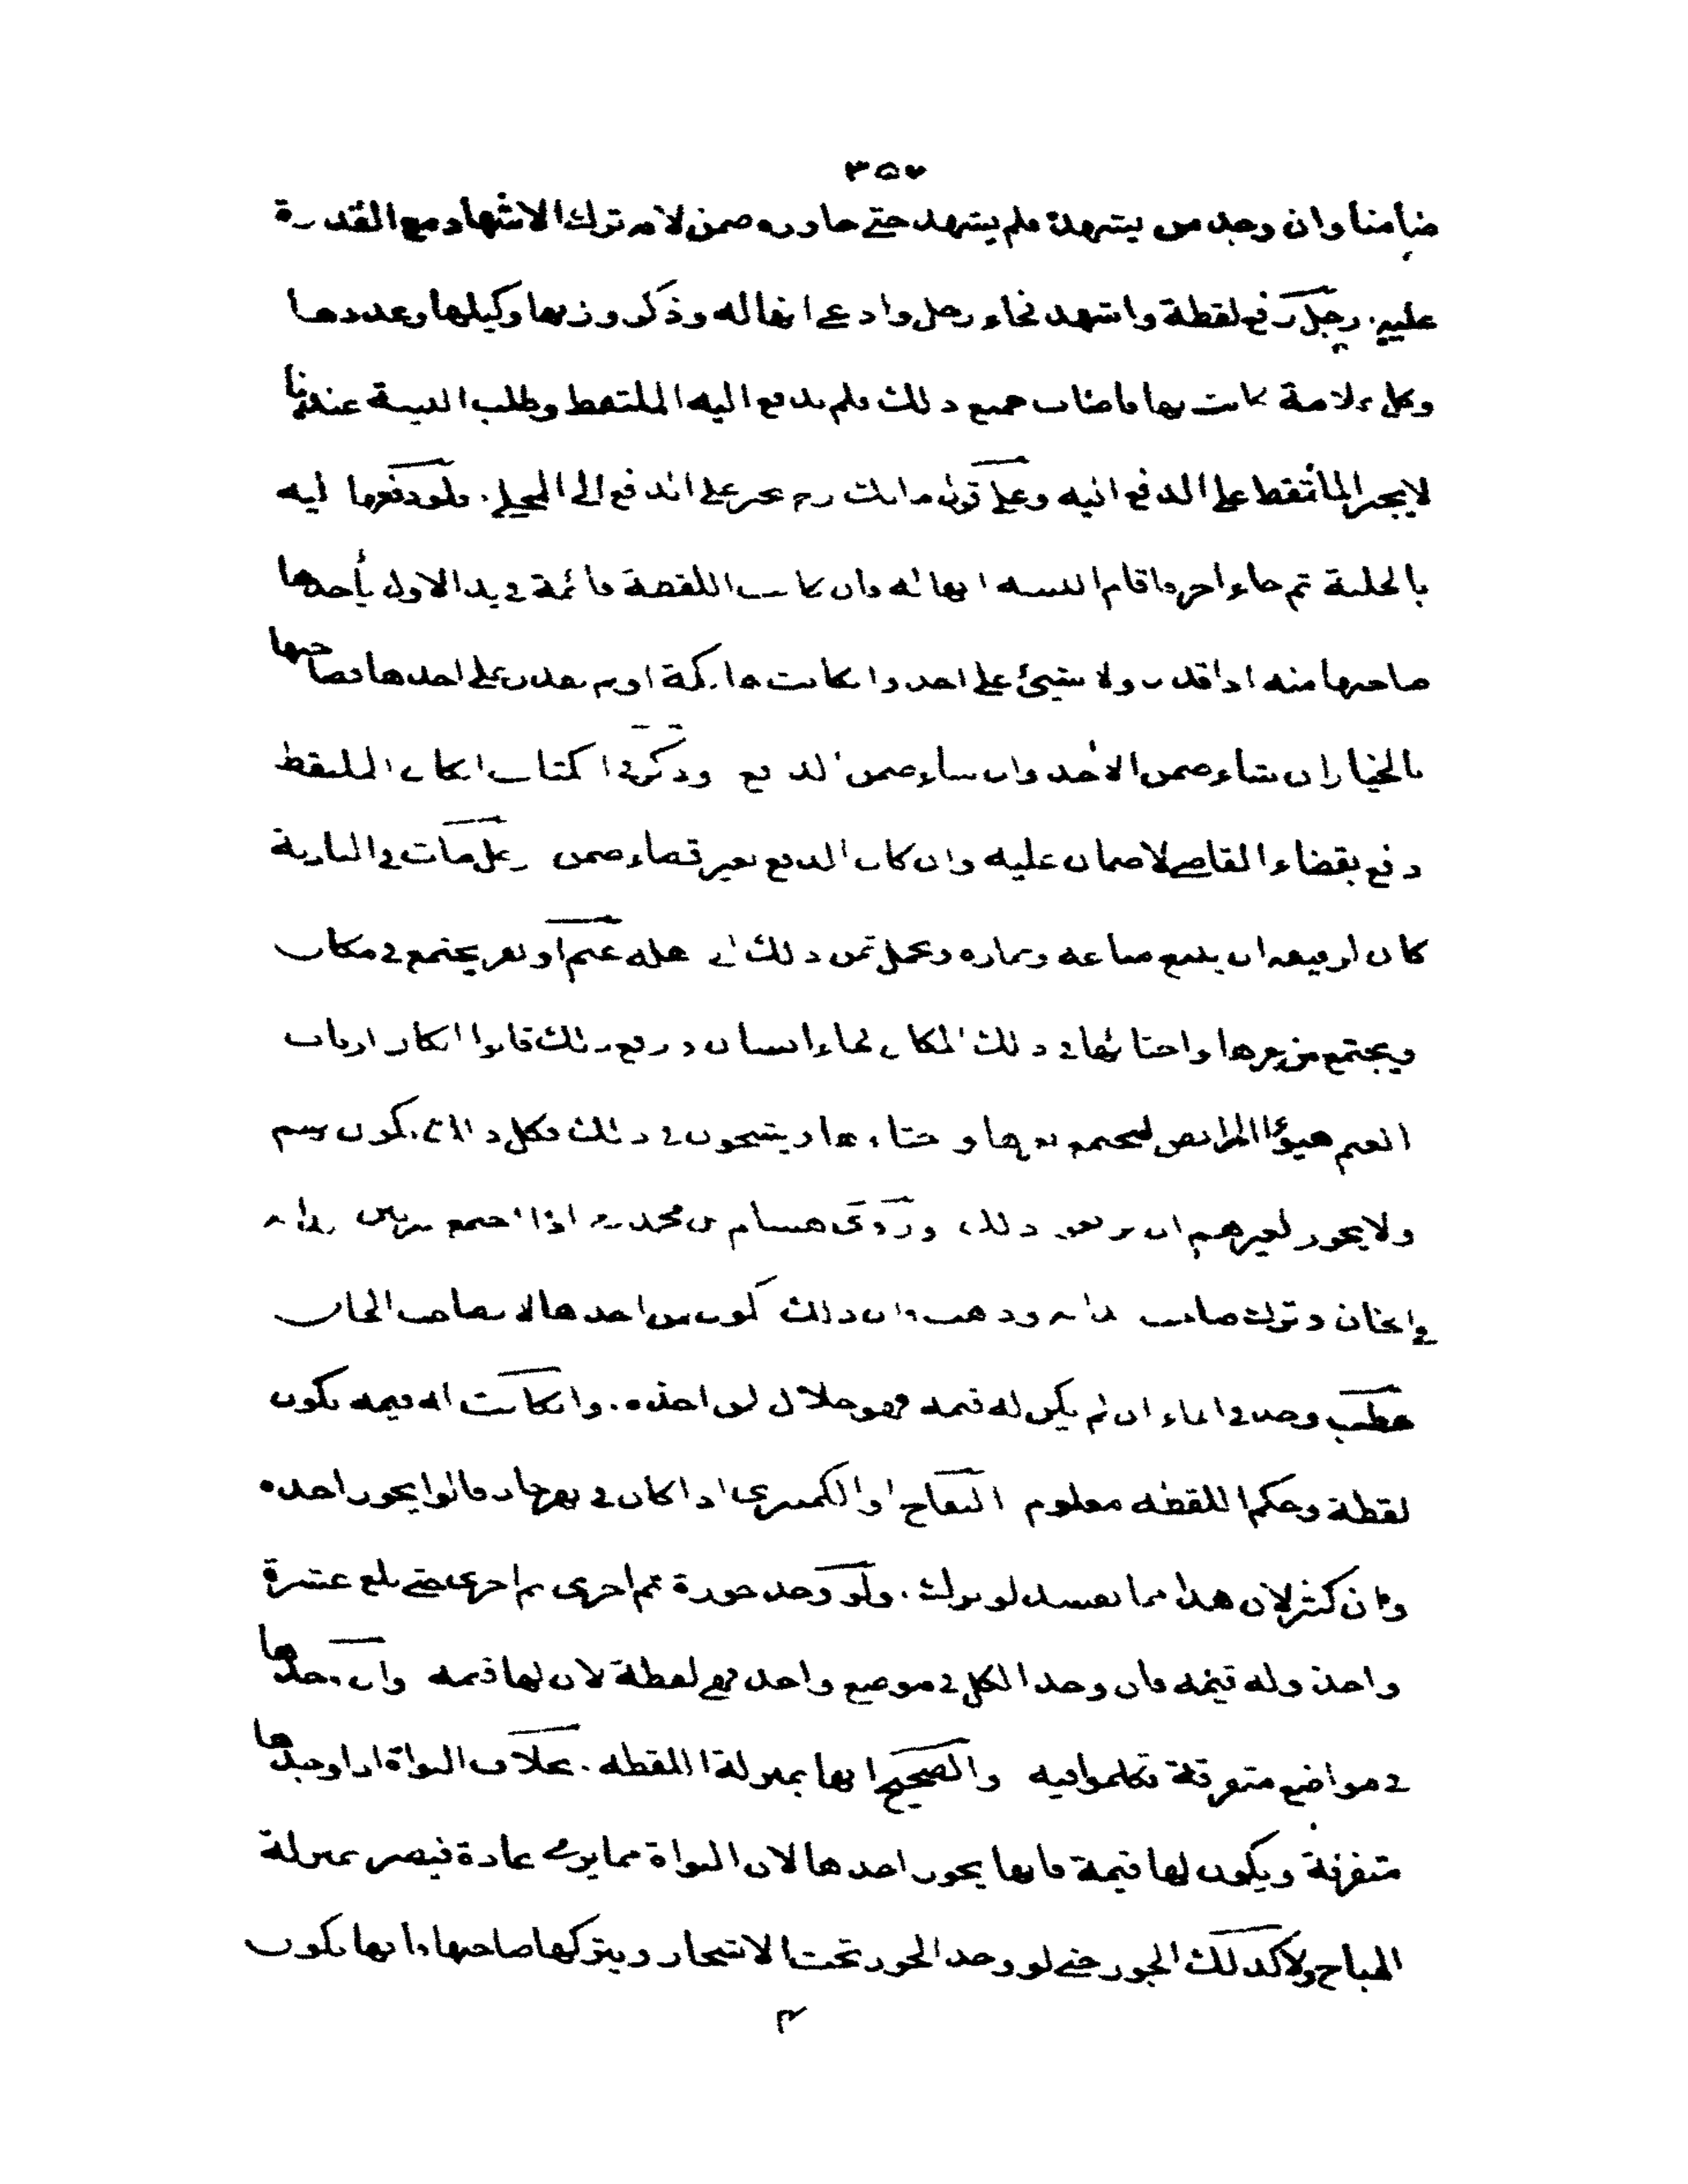 ٣٥٧
ضامنا وان وجد من يشهده فلم يشهد حتى جاوزه ضمن لانه ترك الاشهاد مع القدرة
عليه. رجل رفع لقطة واشهد فجاء رجل وادعى انها له وذكر وزنها وكيلها وعددها
وكل علامة كانت بها فاصاب جميع ذلك فلم يدفع اليه الملتقط وطلب البينة عندنا
لايجبر الملتقط على الدفع اليه وعلى قول مالك رح يجبر على الدفع الى المحلى. ولو دفعها اليه
بالحلية ثم جاء اخر واقام البينة انها له فان كانت اللقطة قائمة في يد الاول يأخذها
صاحبها منه اذا قدر ولا شيئ على احد وانكانت هالكة اولم يقدر على اخذها فصاحبها
بالخيار ان شاء ضمن الاخذ وان شاء ضمن الدافع وذكر في الكتاب انكان الملتقط
دفع بقضاء القاضي لاضمان عليه وان كان الدفع بغير قضاء ضمن رجل مات في البادية
كان لرفيقه ان يبيع متاعه وحماره ويحمل ثمن ذلك الى اهله غنم او بقر يجتمع في مكان
ويجتمع من بعرها واحثائها في ذلك المكان فجاء انسان ورفع ذلك قالوا انكان ارباب
الغنم هيؤا المرابض ليجتمع بعرها و اخثاءها ويشحون في ذلك فكل ذلك يكون لهم
ولايجوز لغيرهم ان يرفعوا ذلك وروى هشام عن محمد رح اذا اجتمع سرقين الدابة
في الخان وترك صاحب الدابة وذهب فان ذلك يكون لمن اخذها لا لصاحب الخان
حطب وجد في الماء ان لم يكن له قيمة فهو حلال لمن اخذه. وانكانت له قيمة يكون
لقطة وحكم اللقطة معلوم التفاح او الكمثرى اذا كان في نهر جار قالوا يجوز اخذه
وان كثر لان هذا مما يفسد لو ترك. ولو وجد جوزة ثم اخرى ثم اخرى حتى بلغ عشرة
واخذ وله قيمة فان وجد الكل في موضع واحد فهي لقطة لان لها قيمة وان وجدها
في مواضع متفرقة تكلموا فيه والصحيح انها بمنزلة اللقطة. بخلاف النواة اذا وجدها
متفرقة ويكون لها قيمة فانها يجوز اخذها لان النواة مما يرمى عادة فيصير بمنزلة
المباح ولاكذلك الجوز حتى لو وجد الجوز تحت الاشجار ويتركها صاحبها فانها يكون